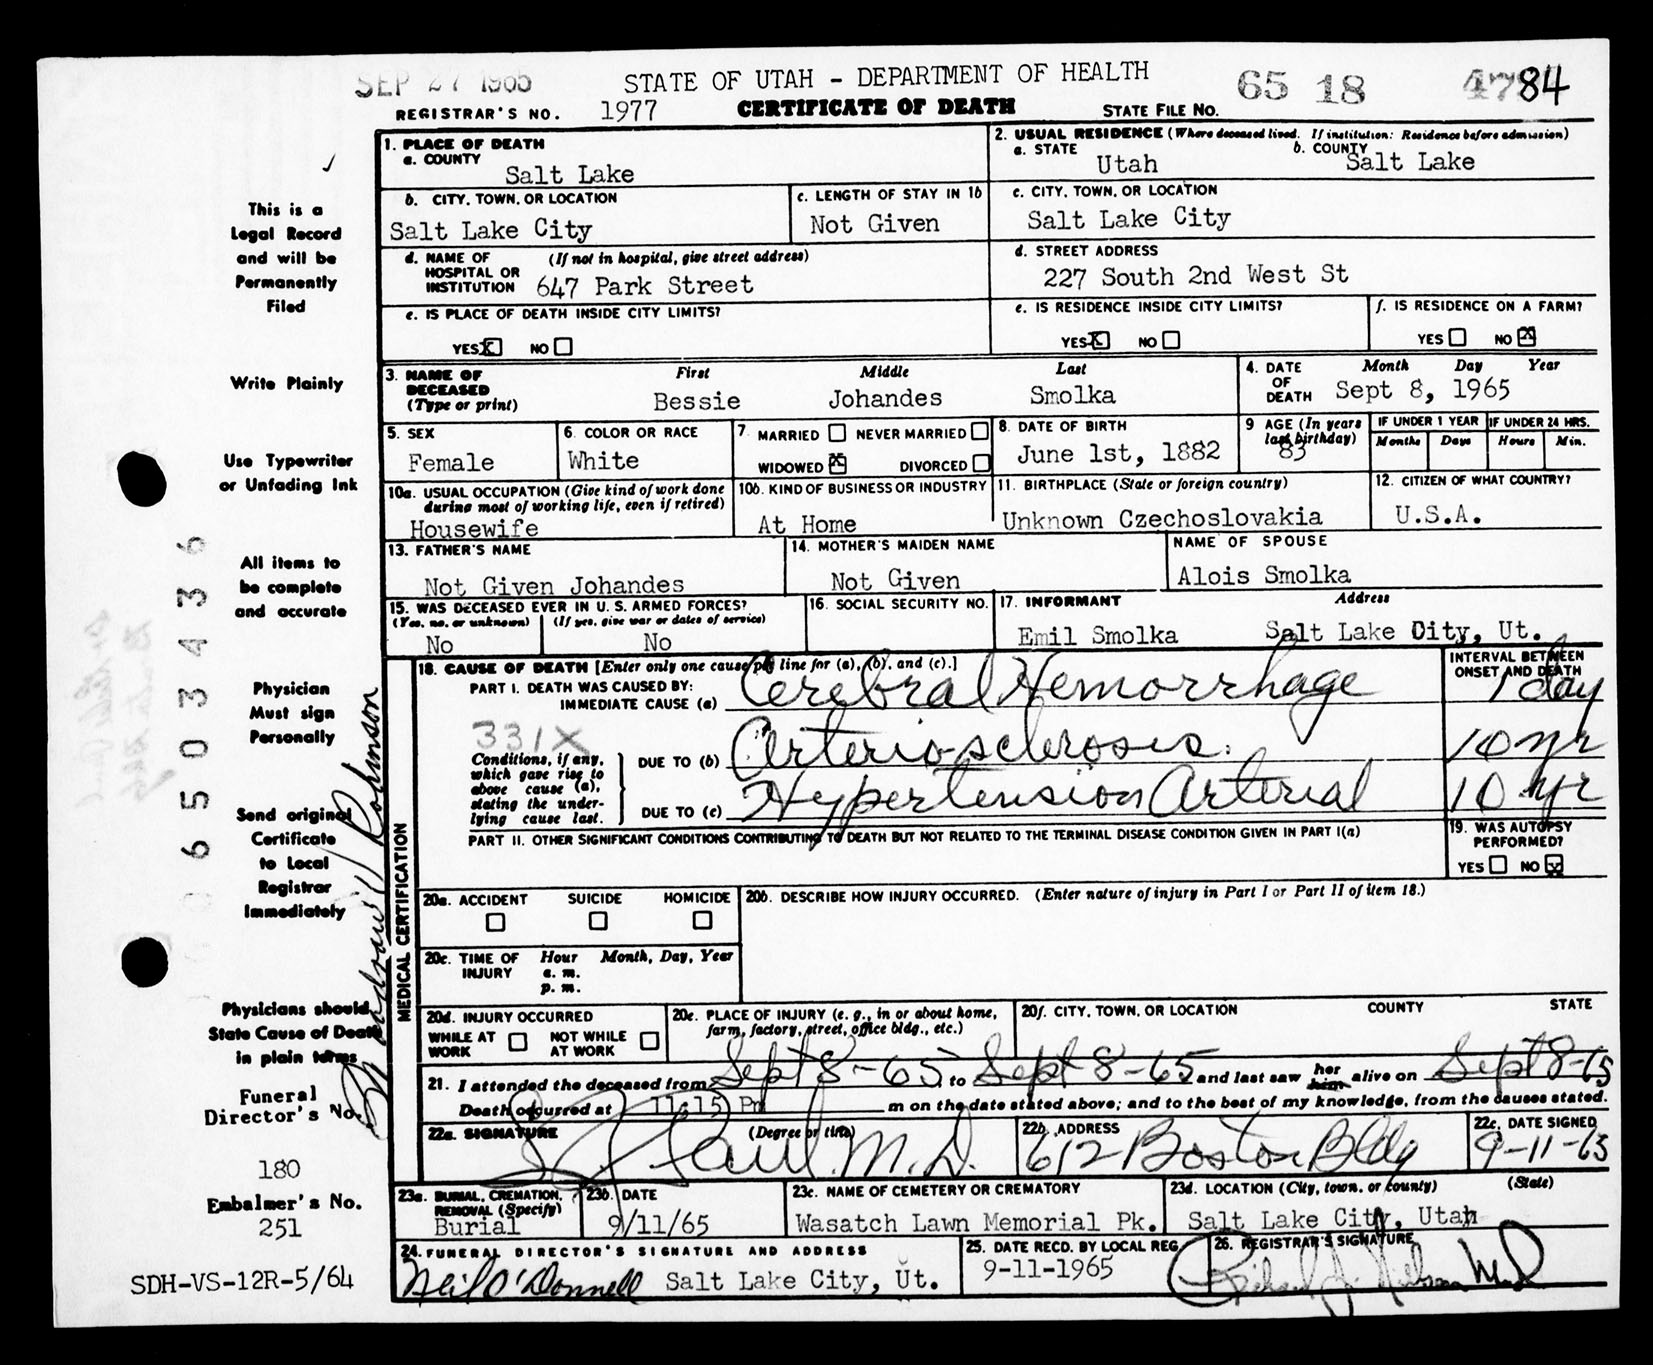 SEP 27 1965
STATE OF UTAH - DEPARTMENT OF HEALTH
65 18 4784
REGISTRAR'S NO. 1977 CERTIFICATE OF DEATH STATE FILE NO.
1. PLACE OF DEATH
a. COUNTY
Salt Lake
2. USUAL RESIDENCE (Where deceased lived. If institution: Residence before admission)
a. STATE b. COUNTY
Utah Salt Lake
b. CITY, TOWN, OR LOCATION
Salt Lake City
c. LENGTH OF STAY IN 1b
Not Given
c. CITY, TOWN, OR LOCATION
Salt Lake City
d. NAME OF HOSPITAL OR INSTITUTION (If not in hospital, give street address)
647 Park Street
d. STREET ADDRESS
227 South 2nd West St
e. IS PLACE OF DEATH INSIDE CITY LIMITS?
YES X NO
e. IS RESIDENCE INSIDE CITY LIMITS?
YES X NO
f. IS RESIDENCE ON A FARM?
YES NO X
3. NAME OF DECEASED (Type or print)
First Middle Last
Bessie Johandes Smolka
4. DATE OF DEATH Month Day Year
Sept 8, 1965
5. SEX
Female
6. COLOR OR RACE
White
7 MARRIED NEVER MARRIED
WIDOWED X DIVORCED
8. DATE OF BIRTH
June 1st, 1882
9 AGE (In years last birthday)
83
IF UNDER 1 YEAR IF UNDER 24 HRS.
Months Days Hours Min.
10a. USUAL OCCUPATION (Give kind of work done during most of working life, even if retired)
Housewife
10b. KIND OF BUSINESS OR INDUSTRY
At Home
11. BIRTHPLACE (State or foreign country)
Unknown Czechoslovakia
12. CITIZEN OF WHAT COUNTRY?
U.S.A.
13. FATHER'S NAME
Not Given Johandes
14. MOTHER'S MAIDEN NAME
Not Given
NAME OF SPOUSE
Alois Smolka
15. WAS DECEASED EVER IN U. S. ARMED FORCES?
(Yes, no, or unknown) (If yes, give war or dates of service)
No No
16. SOCIAL SECURITY NO.
17. INFORMANT Address
Emil Smolka Salt Lake City, Ut.
18. CAUSE OF DEATH [Enter only one cause per line for (a), (b), and (c).]
INTERVAL BETWEEN ONSET AND DEATH
PART I. DEATH WAS CAUSED BY:
IMMEDIATE CAUSE (a) Cerebral Hemorrhage 1 day
331X
Conditions, if any, which gave rise to above cause (a), stating the underlying cause last.
DUE TO (b) Arteriosclerosis 10 yr
DUE TO (c) Hypertension Arterial 10 yr
PART II. OTHER SIGNIFICANT CONDITIONS CONTRIBUTING TO DEATH BUT NOT RELATED TO THE TERMINAL DISEASE CONDITION GIVEN IN PART I(a)
19. WAS AUTOPSY PERFORMED?
YES NO X
MEDICAL CERTIFICATION
20a. ACCIDENT SUICIDE HOMICIDE
20b. DESCRIBE HOW INJURY OCCURRED. (Enter nature of injury in Part I or Part II of item 18.)
20c. TIME OF INJURY Hour Month, Day, Year
a. m.
p. m.
20d. INJURY OCCURRED
WHILE AT WORK NOT WHILE AT WORK
20e. PLACE OF INJURY (e. g., in or about home, farm, factory, street, office bldg., etc.)
20f. CITY, TOWN, OR LOCATION COUNTY STATE
21. I attended the deceased from Sept 8-65 to Sept 8-65 and last saw her him alive on Sept 8-65
Death occurred at 11:15 Pm m on the date stated above; and to the best of my knowledge, from the causes stated.
22a. SIGNATURE (Degree or title)
Paul M.D.
22b. ADDRESS
612 Boston Bldg
22c. DATE SIGNED
9-11-65
23a. BURIAL, CREMATION, REMOVAL (Specify)
Burial
23b. DATE
9/11/65
23c. NAME OF CEMETERY OR CREMATORY
Wasatch Lawn Memorial Pk.
23d. LOCATION (City, town, or county) (State)
Salt Lake City, Utah
24. FUNERAL DIRECTOR'S SIGNATURE AND ADDRESS
Neil O'Donnell Salt Lake City, Ut.
25. DATE RECD. BY LOCAL REG
9-11-1965
26. REGISTRAR'S SIGNATURE
This is a
Legal Record
and will be
Permanently
Filed
Write Plainly
Use Typewriter
or Unfading Ink
All items to
be complete
and accurate
Physician
Must sign
Personally
Send original
Certificate
to Local
Registrar
Immediately
Physicians should
State Cause of Death
in plain terms
Funeral
Director's No.
180
Embalmer's No.
251
SDH-VS-12R-5/64
0 6 5 0 3 4 3 6